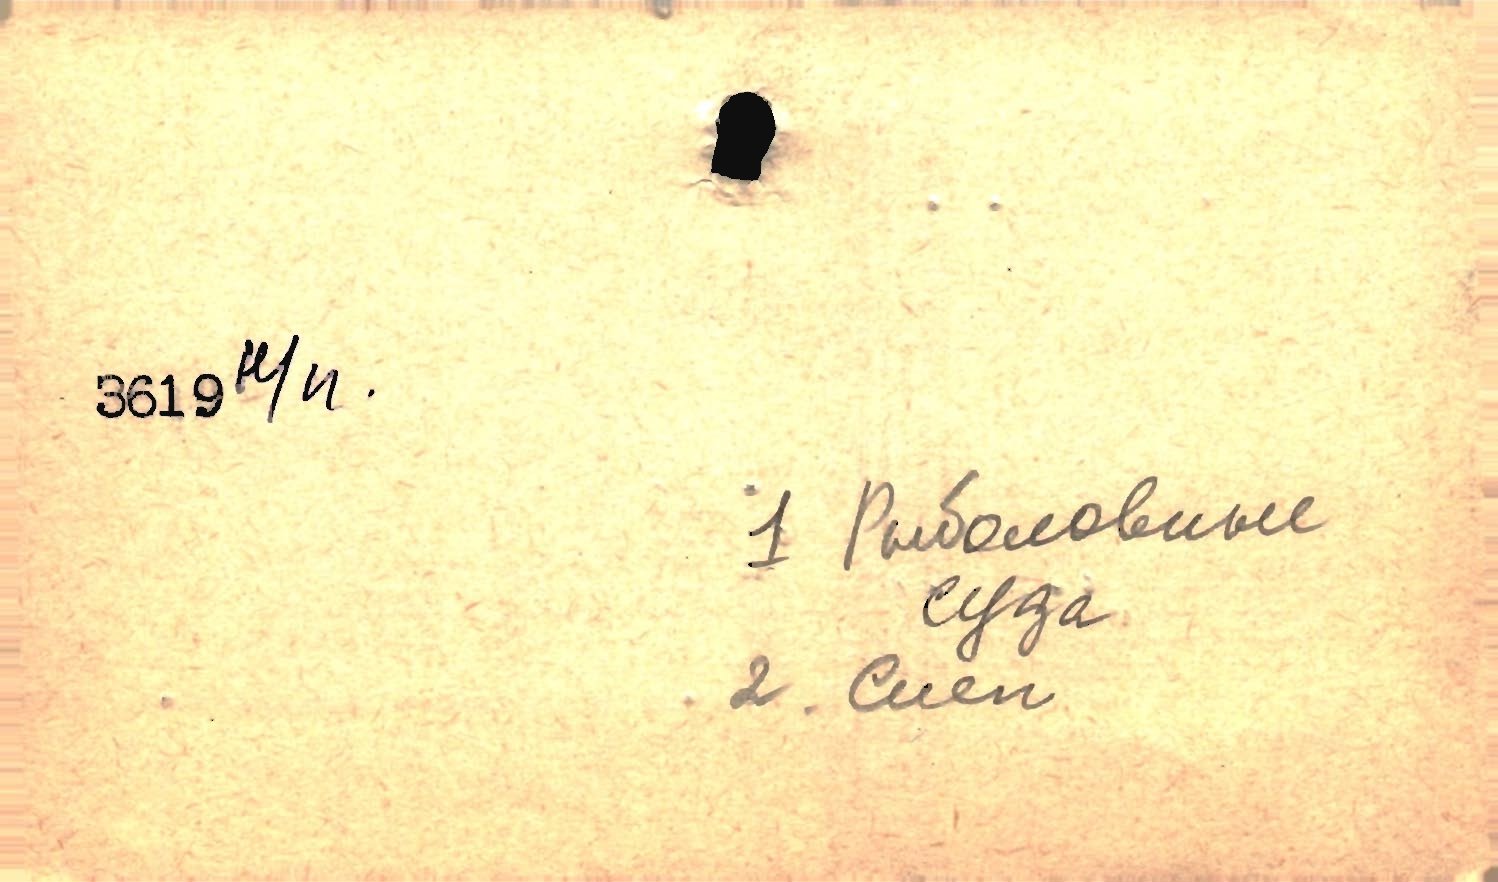 3619 н/п.
1 Рыболовные
суда
2. Слеп